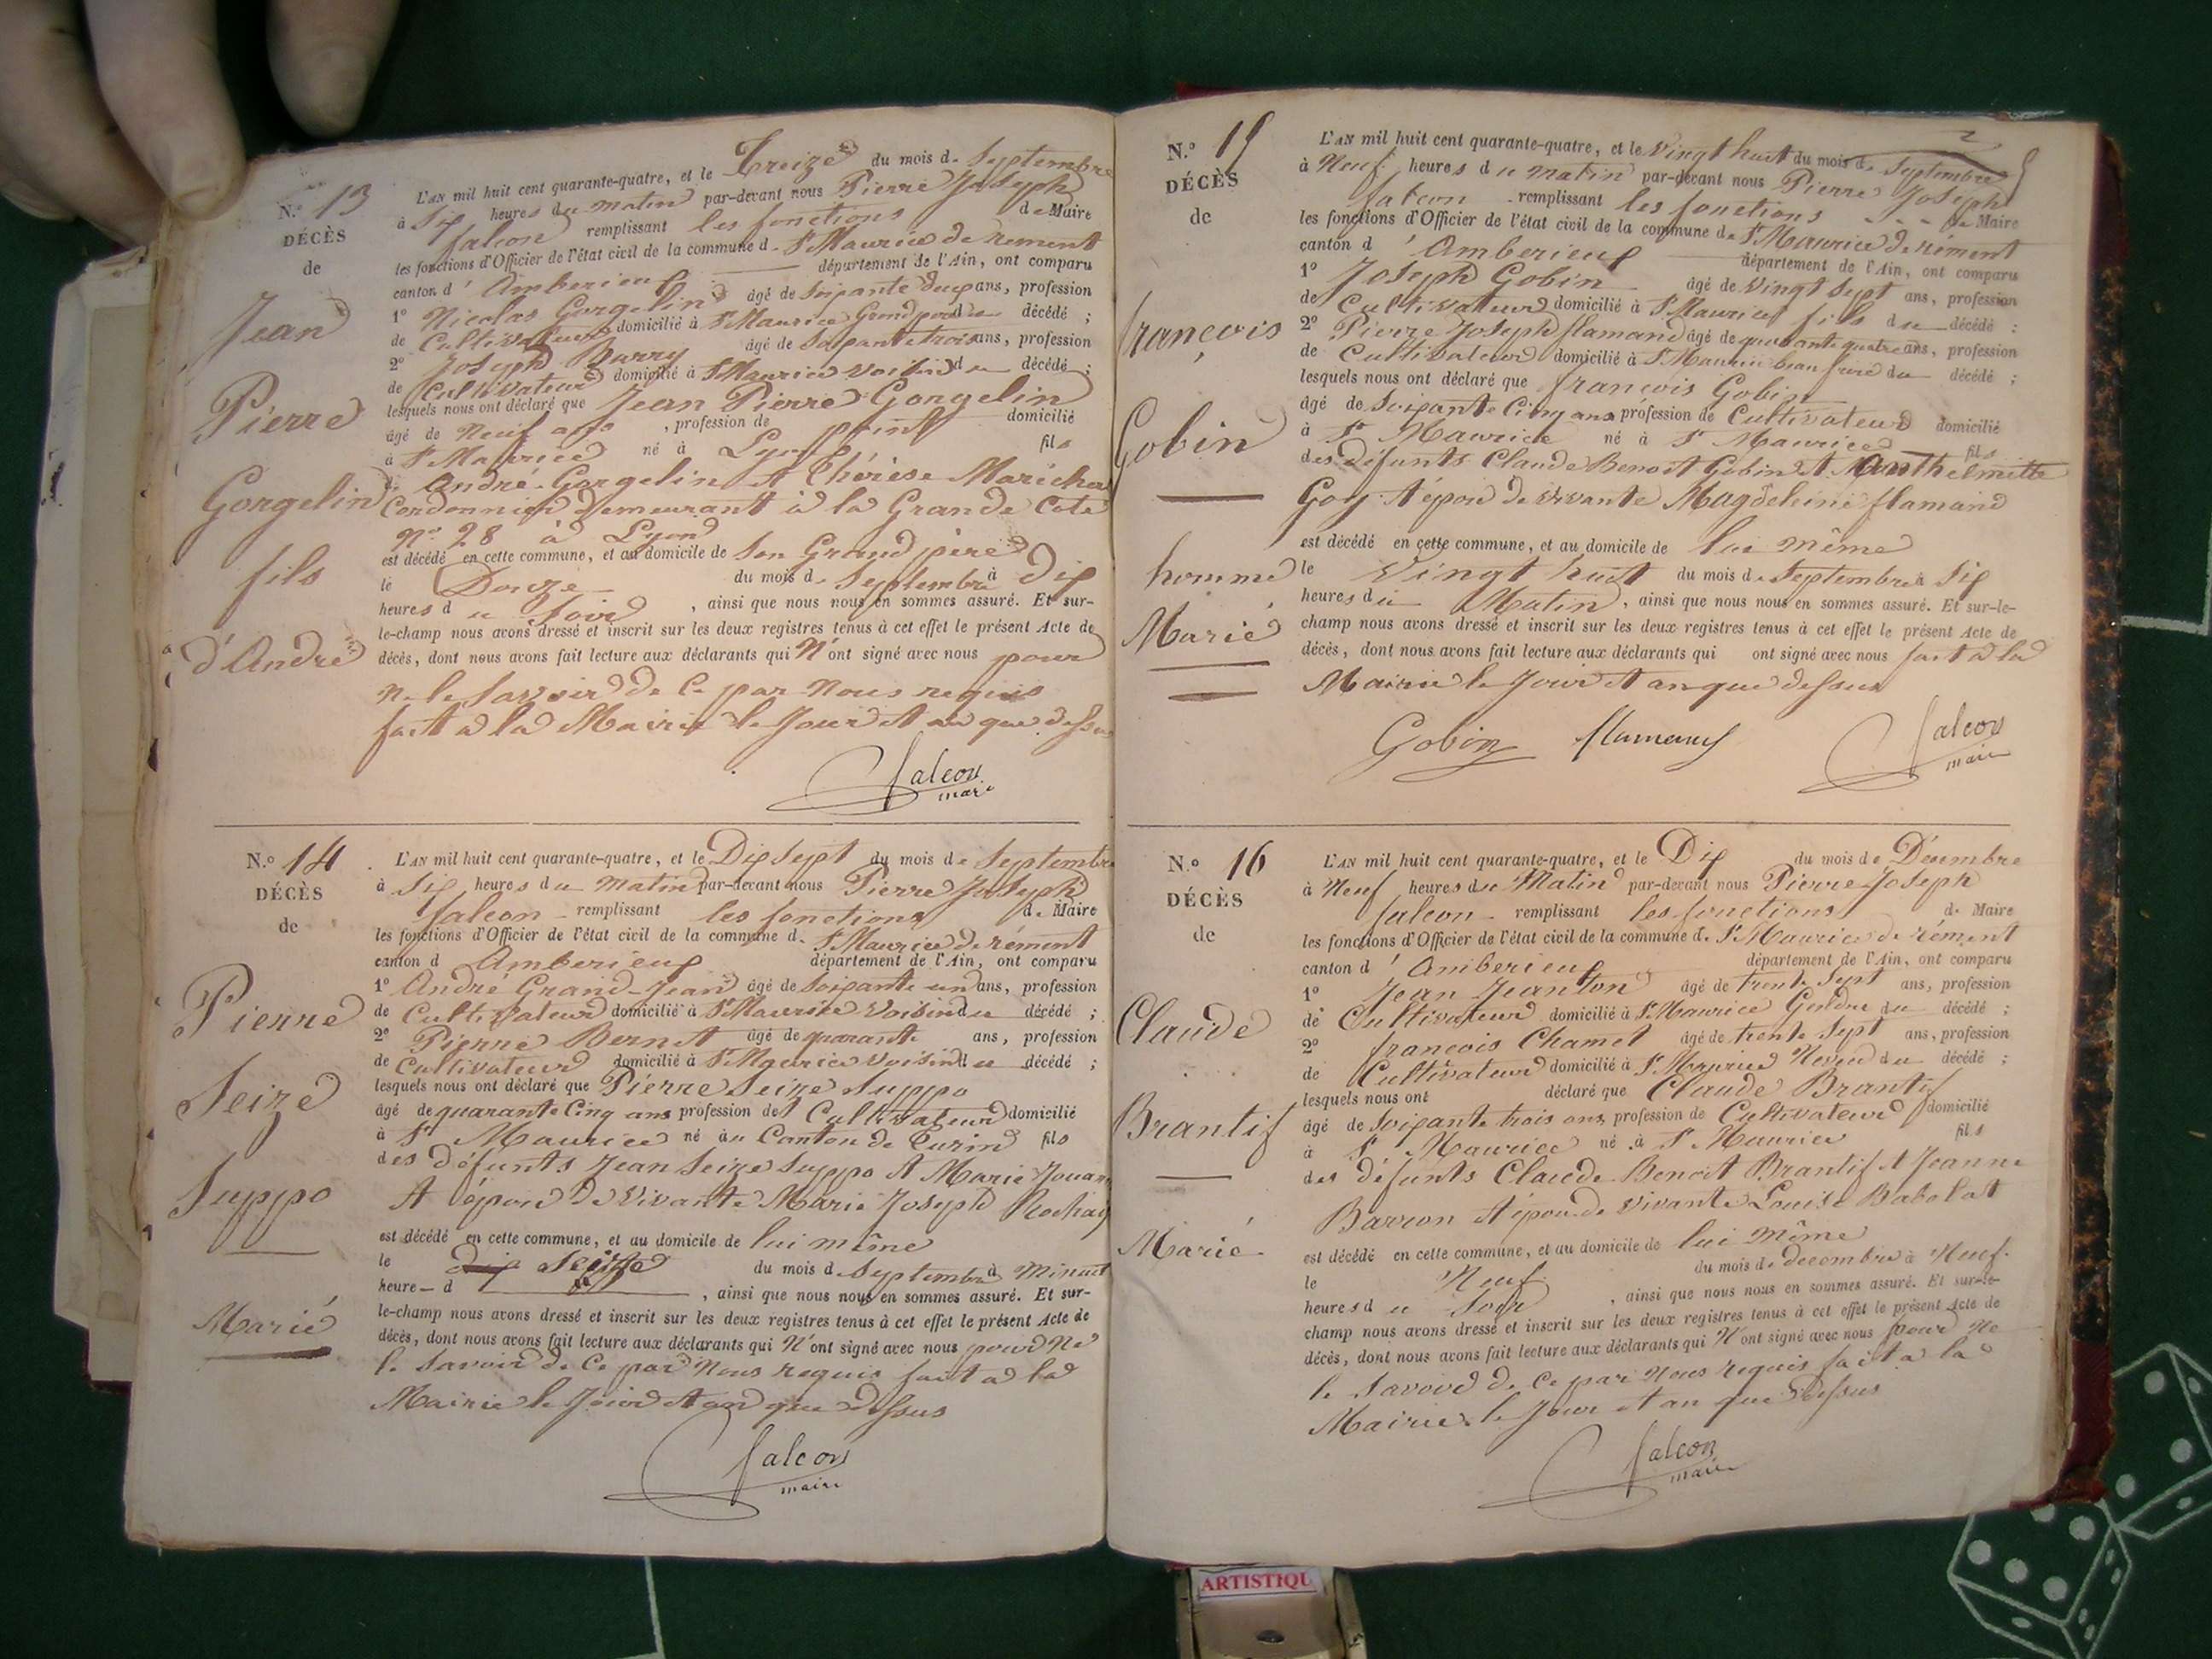 N.º 13
DÉCÈS
de
Jean
Pierre
Gorgelin
fils
d'André
L'AN mil huit cent quarante-quatre, et le Treize du mois de Septembre
à Six heures du matin par-devant nous Pierre Joseph
falcon remplissant les fonctions de Maire
les fonctions d'Officier de l'état civil de la commune d. St Maurice de rement
canton d' Amberieux département de l'Ain, ont comparu
1º Nicolas Gorgelin âgé de Soixante deux ans, profession
de Cultivateur domicilié à St Maurice Grand père du décédé ;
2º Joseph Barry âgé de Soixante trois ans, profession
de Cultivateur domicilié à St Maurice voisin du décédé ;
lesquels nous ont déclaré que Jean Pierre Gorgelin
âgé de Neuf ans , profession de point domicilié
à St Maurice né à Lyon fils
d'André Gorgelin et Thérèse Marichal
Cordonnier demeurant à la Grande Cote
Nº 28 à Lyon
est décédé en cette commune, et au domicile de Son Grand père
le Douze du mois d. Septembre à Dix
heures du Soir , ainsi que nous nous en sommes assuré. Et sur-
le-champ nous avons dressé et inscrit sur les deux registres tenus à cet effet le présent Acte de
décès, dont nous avons fait lecture aux déclarants qui N'ont signé avec nous pour
Ne le Savoir de Ce par Nous requis
fait a la Mairie le Jour et an que dessus
falcon
maire
N.º 14
DÉCÈS
de
Pierre
Seize
Suppo
Marié
L'AN mil huit cent quarante-quatre, et le Dix Sept du mois de Septembre
à Six heures du matin par-devant nous Pierre Joseph
falcon remplissant les fonctions de Maire
les fonctions d'Officier de l'état civil de la commune d. St Maurice de rément
canton d Amberieux département de l'Ain, ont comparu
1º André Grand-Jean âgé de Soixante un ans, profession
de Cultivateur domicilié à St Maurice Voisin du décédé ;
2º Pierre Bernet âgé de quarante ans, profession
de Cultivateur domicilié à St Maurice Voisin du décédé ;
lesquels nous ont déclaré que Pierre Seize Suppo
âgé de quarante Cinq ans profession de Cultivateur domicilié
à St Maurice né au Canton de Turin fils
des défunts Jean Seize Suppo et Marie Jouan
et époux de Vivante Marie Joseph Rochay
est décédé en cette commune, et au domicile de lui même
le Seize du mois d Septembre à Minuit
heure d , ainsi que nous nous en sommes assuré. Et sur-
le-champ nous avons dressé et inscrit sur les deux registres tenus à cet effet le présent Acte de
décès, dont nous avons fait lecture aux déclarants qui N'ont signé avec nous pour Ne
le Savoir de Ce par Nous requis fait a la
Mairie le Jour et an que dessus
falcon
maire
N.º 15
DÉCÈS
de
françois
Gobin
homme
Marié
L'AN mil huit cent quarante-quatre, et le Vingt huit du mois d. Septembre
à Neuf heures du matin par-devant nous Pierre Joseph
falcon remplissant les fonctions de Maire
les fonctions d'Officier de l'état civil de la commune de St Maurice de rément
canton d' Amberieux département de l'Ain, ont comparu
1º Joseph Gobin âgé de Vingt Sept ans, profession
de Cultivateur domicilié à St Maurice fils du décédé ;
2º Pierre Joseph flamand âgé de quarante quatre ans, profession
de Cultivateur domicilié à St Maurice beau frère du décédé ;
lesquels nous ont déclaré que françois Gobin
âgé de Soixante Cinq ans profession de Cultivateur domicilié
à St Maurice né à St Maurice fils
des défunts Claude Benoit Gobin et Anthelmitte
Goy et époux de vivante Magdeleine flamand
est décédé en cette commune, et au domicile de lui même
le Vingt huit du mois de Septembre à Six
heures du Matin, ainsi que nous nous en sommes assuré. Et sur-le-
champ nous avons dressé et inscrit sur les deux registres tenus à cet effet le présent Acte de
décès, dont nous avons fait lecture aux déclarants qui ont signé avec nous fait a la
Mairie le Jour et an que dessus
Gobin flamand falcon
maire
N.º 16
DÉCÈS
de
Claude
Brantif
Marié
L'AN mil huit cent quarante-quatre, et le Dix du mois de Décembre
à Neuf heures du Matin par-devant nous Pierre Joseph
falcon remplissant les fonctions de Maire
les fonctions d'Officier de l'état civil de la commune d. St Maurice de rément
canton d' Amberieux département de l'Ain, ont comparu
1º Jean Jeanton âgé de trente Sept ans, profession
de Cultivateur domicilié à St Maurice Gendre du décédé ;
2º françois Chamel âgé de trente Sept ans, profession
de Cultivateur domicilié à St Maurice Neveu du décédé ;
lesquels nous ont déclaré que Claude Brantif
âgé de Soixante trois ans profession de Cultivateur domicilié
à St Maurice né à St Maurice fils
des défunts Claude Benoit Brantif et Jeanne
Barron et époux de vivante Louise Babolat
est décédé en cette commune, et au domicile de lui même
le Neuf du mois de decembre à Neuf
heures du Soir , ainsi que nous nous en sommes assuré. Et sur-le-
champ nous avons dressé et inscrit sur les deux registres tenus à cet effet le présent Acte de
décès, dont nous avons fait lecture aux déclarants qui N'ont signé avec nous pour Ne
le Savoir de Ce par Nous requis fait a la
Mairie le Jour et an que dessus
falcon
maire
ARTISTIQU